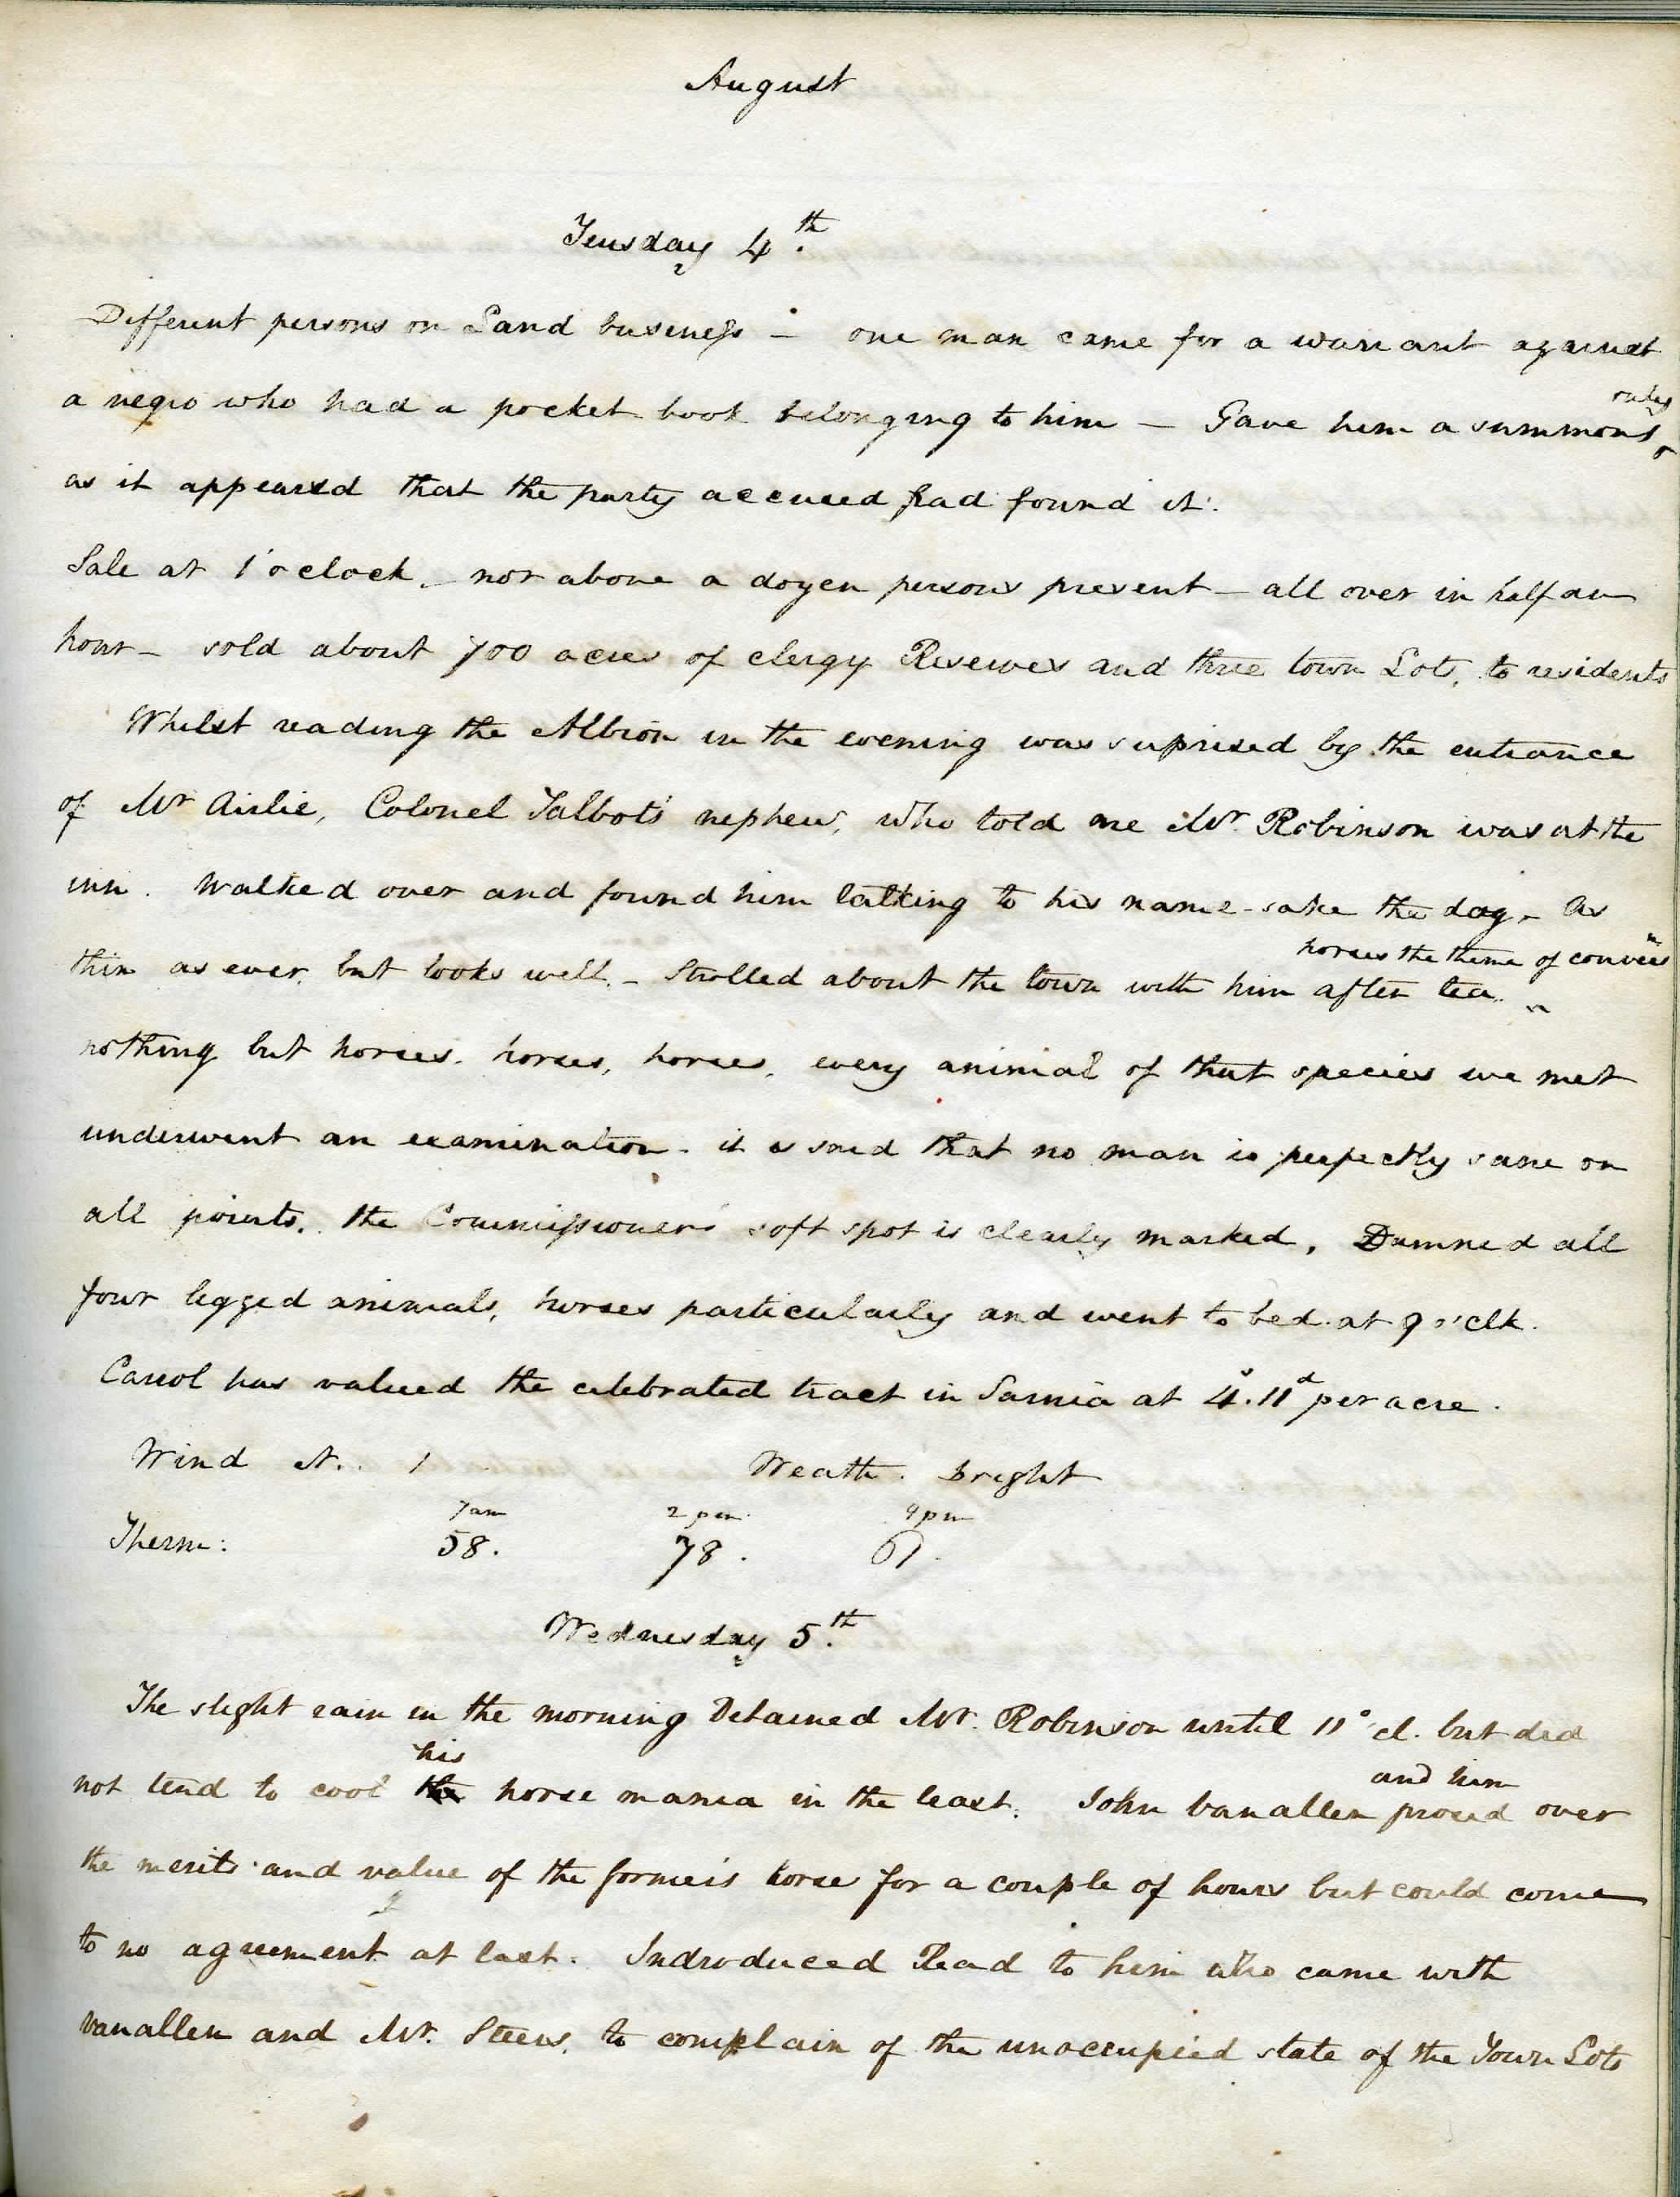 August
Teusday 4th.
Different persons on Land business - one man came for a warrant against
only
a negro who had a pocket book belonging to him - Gave him a summons
as it appeared that the party accused had found it.
Sale at 1 o'clock - not above a dozen persons present - all over in half an
hour - sold about 700 acres of clergy Reserves and three town Lots, to residents
Whilst reading the Albion in the evening was suprised by the entrance
of Mr Airlie, Colonel Talbot's nephew, who told me Mr. Robinson was at the
inn. Walked over and found him talking to his name-sake the dog - As
horses the theme of convers
thin as ever, but looks well. - Strolled about the town with him after tea
nothing but horses, horses, horses, every animal of that species we met
underwent an examination - it is said that no man is perfectly sane on
all points, the Commissioner's soft spot is clearly marked, Damned all
four legged animals, horses particularly and went to bed at 9 o'clk.
Carrol has valued the celebrated tract in Sarnia at 4s.11d per acre.
Wind N. 1 Weath. bright
7am 2 pm 9pm
Therm: 58. 78. 61.
Wednesday 5th.
The slight rain in the morning Detained Mr. Robinson until 11 o'cl. but did
his and him
not tend to cool the horse mania in the least. John Vanallen prosed over
the merits and value of the former's horse for a couple of hours but could come
to no agreement at last. Indroduced Read to him who came with
Vanallen and Mr. Steers, to complain of the unoccupied state of the Town Lots